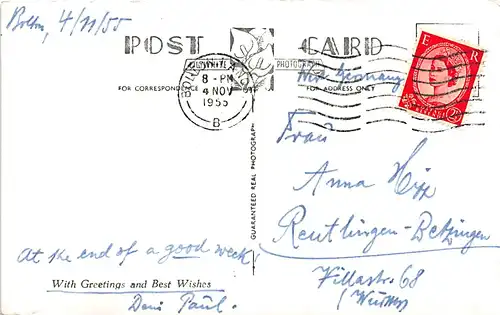 Bolton, 4/11/55
POST CARD
PHOTOGRAPH
FOR CORRESPONDENCE
FOR ADDRESS ONLY
8 - PM
4 NOV
1955
B
E R
West Germany
GUARANTEED REAL PHOTOGRAPH
Frau
Anna Hipp
Reutlingen-Betzingen
Villastr. 68
At the end of a good week!
With Greetings and Best Wishes
Dein Paul.